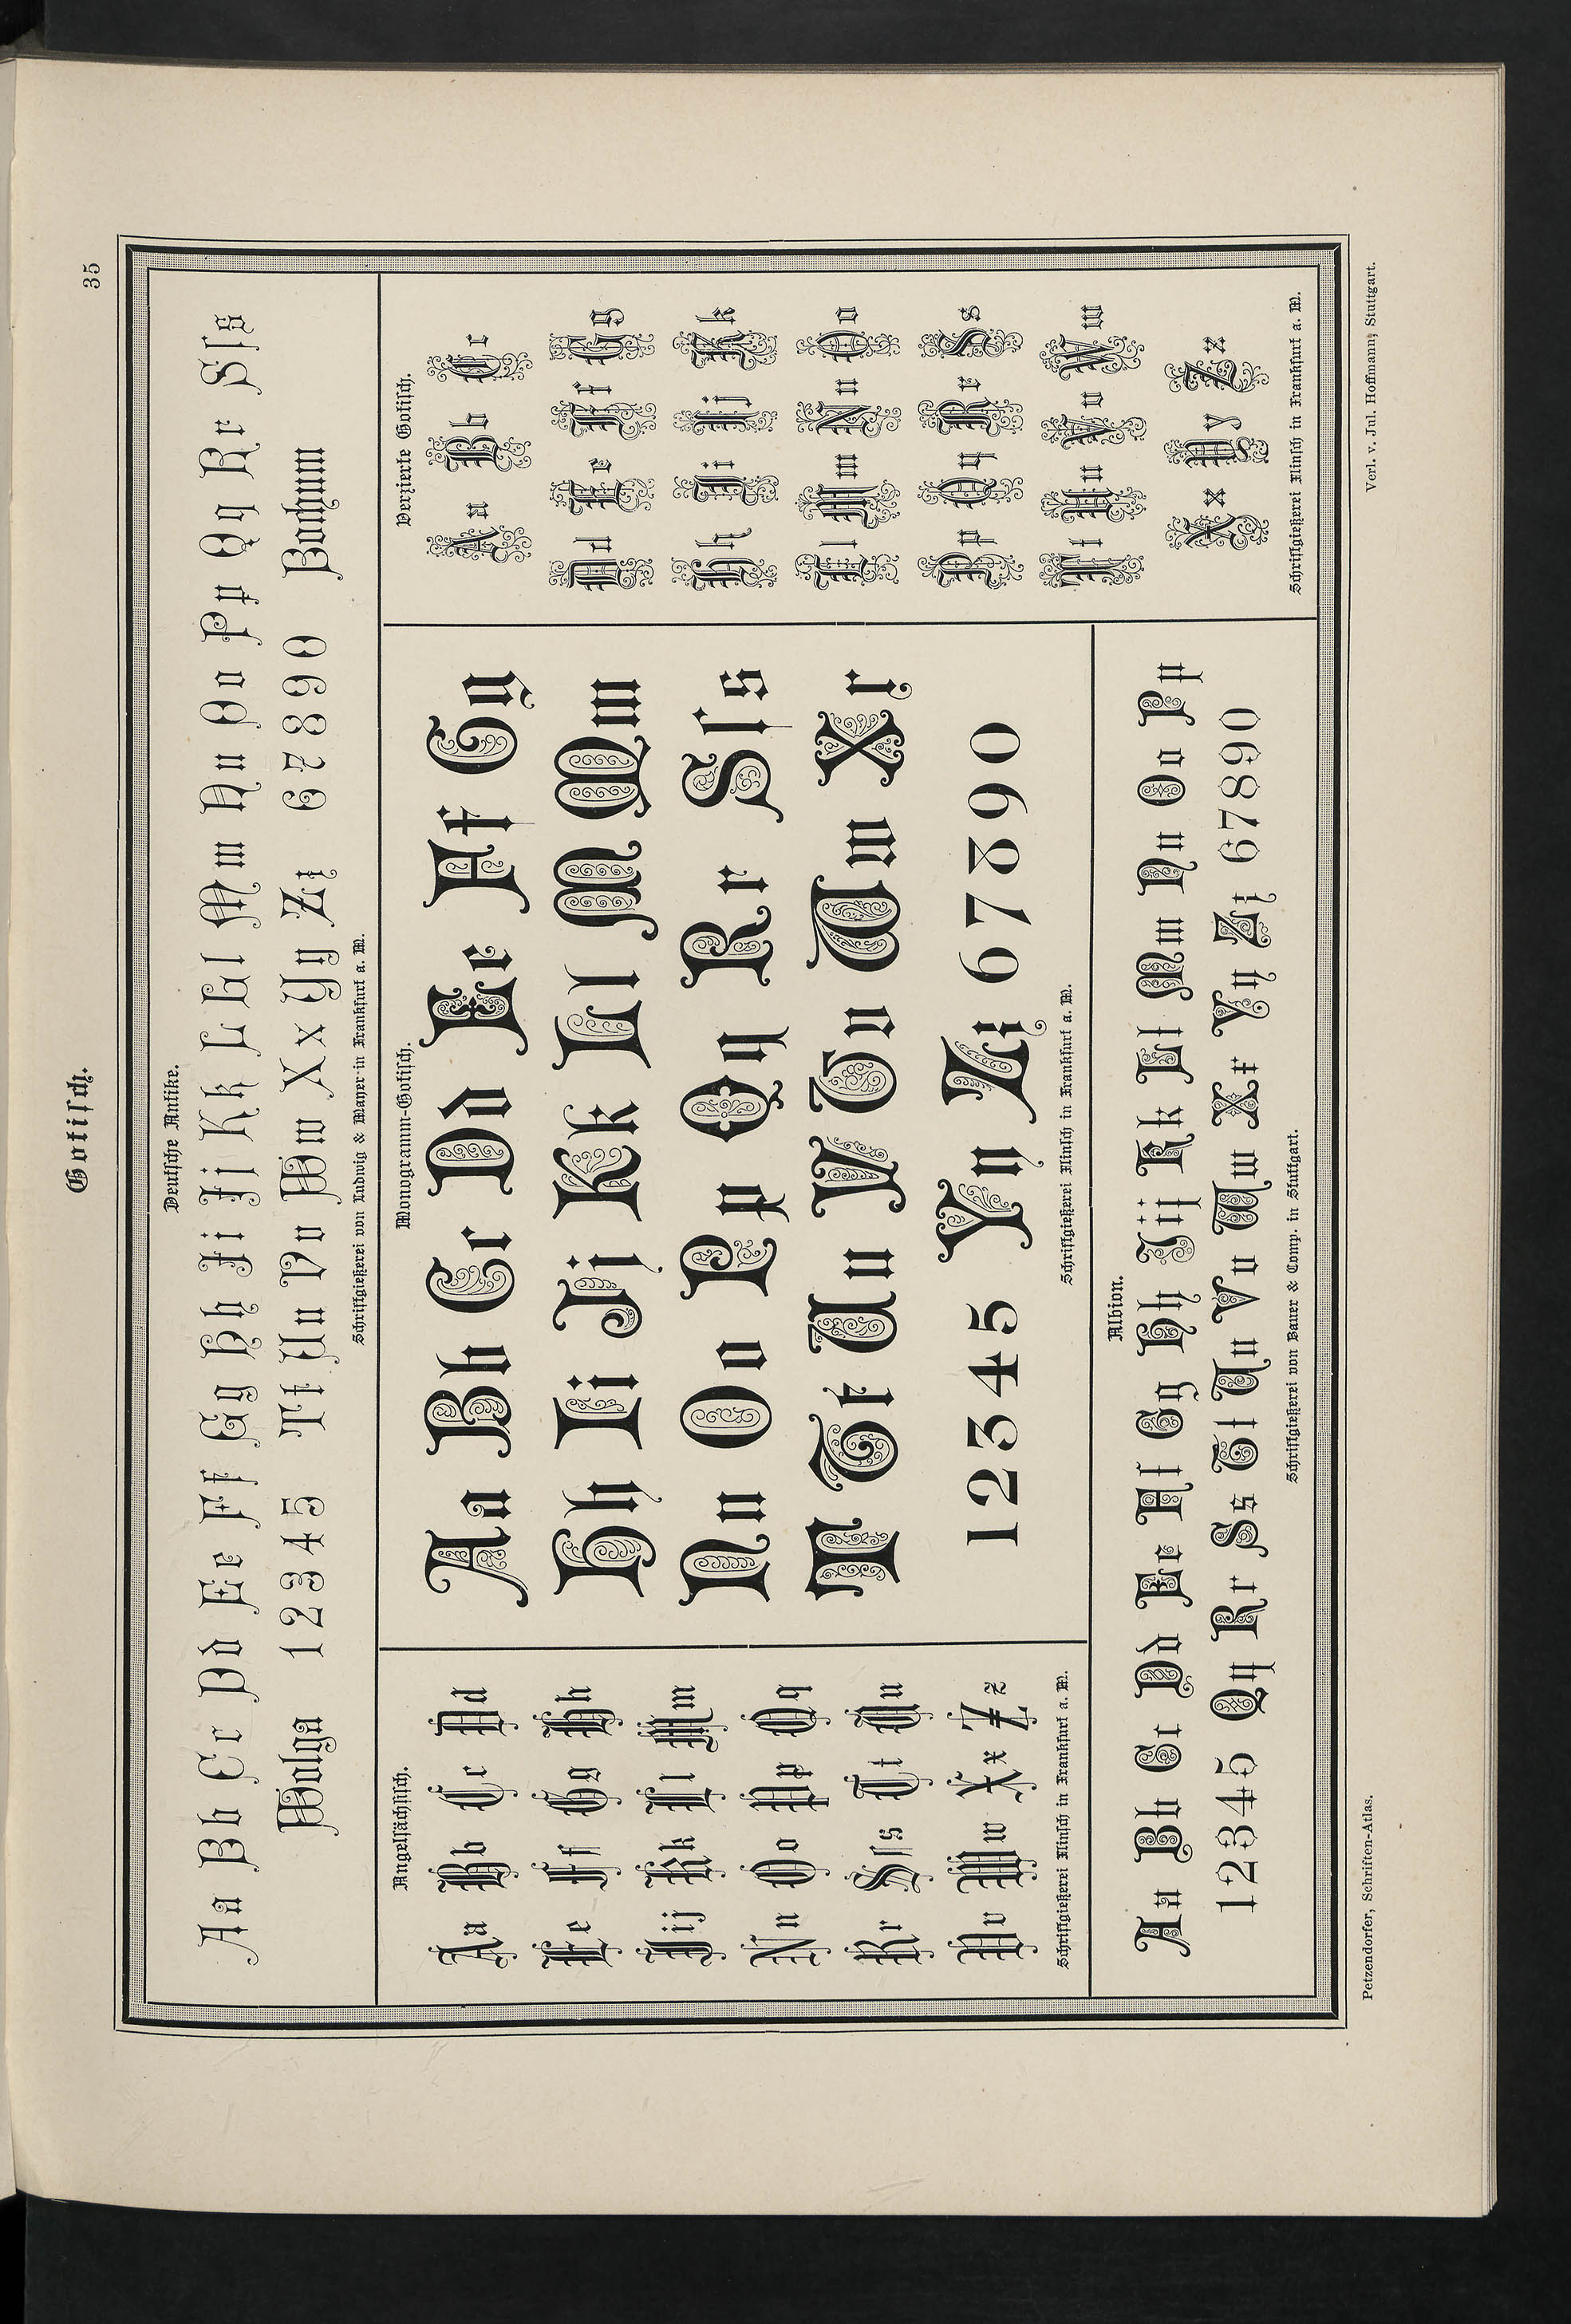 Gotisch.
35
Deutsche Antike.
Aa Bb Cc Dd Ee Ff Gg Hh Ii Jj Kk L Ll Mm Nn Oo Pp Qq Rr Sſs
Wolga 12345 Tt Uu Vv Ww Xx Yy Zz 67890 Bochum
Schriftgießerei von Ludwig & Mayer in Frankfurt a. M.
Angelſächſiſch.
Aa Bb Cc Dd
Ee Ff Gg Hh
Iij Kk Ll Mm
Nn Oo Pp Qq
Rr Sſs Tt Uu
Vv Ww Xx Zz
Schriftgießerei Flinſch in Frankfurt a. M.
Monogramm-Gotiſch.
Aa Bb Cc Dd Ee Ff Gg
Hh Ii Jj Kk Ll M Mm
Nn Oo Pp Qq Rr Sſs
T Tt Uu V Vv Ww Xx
12345 Yy Zz 67890
Schriftgießerei Flinſch in Frankfurt a. M.
Verzierte Gotiſch.
Aa Bb Cc
Dd Ee Ff Gg
Hh Ii Jj Kk
Ll Mm Nn Oo
Pp Qq Rr Ss
Tt Uu Vv Ww
Xx Yy Zz
Schriftgießerei Flinſch in Frankfurt a. M.
Albion.
Aa Bb Cc Dd Ee Ff Gg Hh Iij Kk Ll Mm Nn Oo Pp
12345 Qq Rr Ss Tt Uu Vv Ww Xx Yy Zz 67890
Schriftgießerei von Bauer & Comp. in Stuttgart.
Petzendorfer, Schriften-Atlas.
Verl. v. Jul. Hoffmann, Stuttgart.